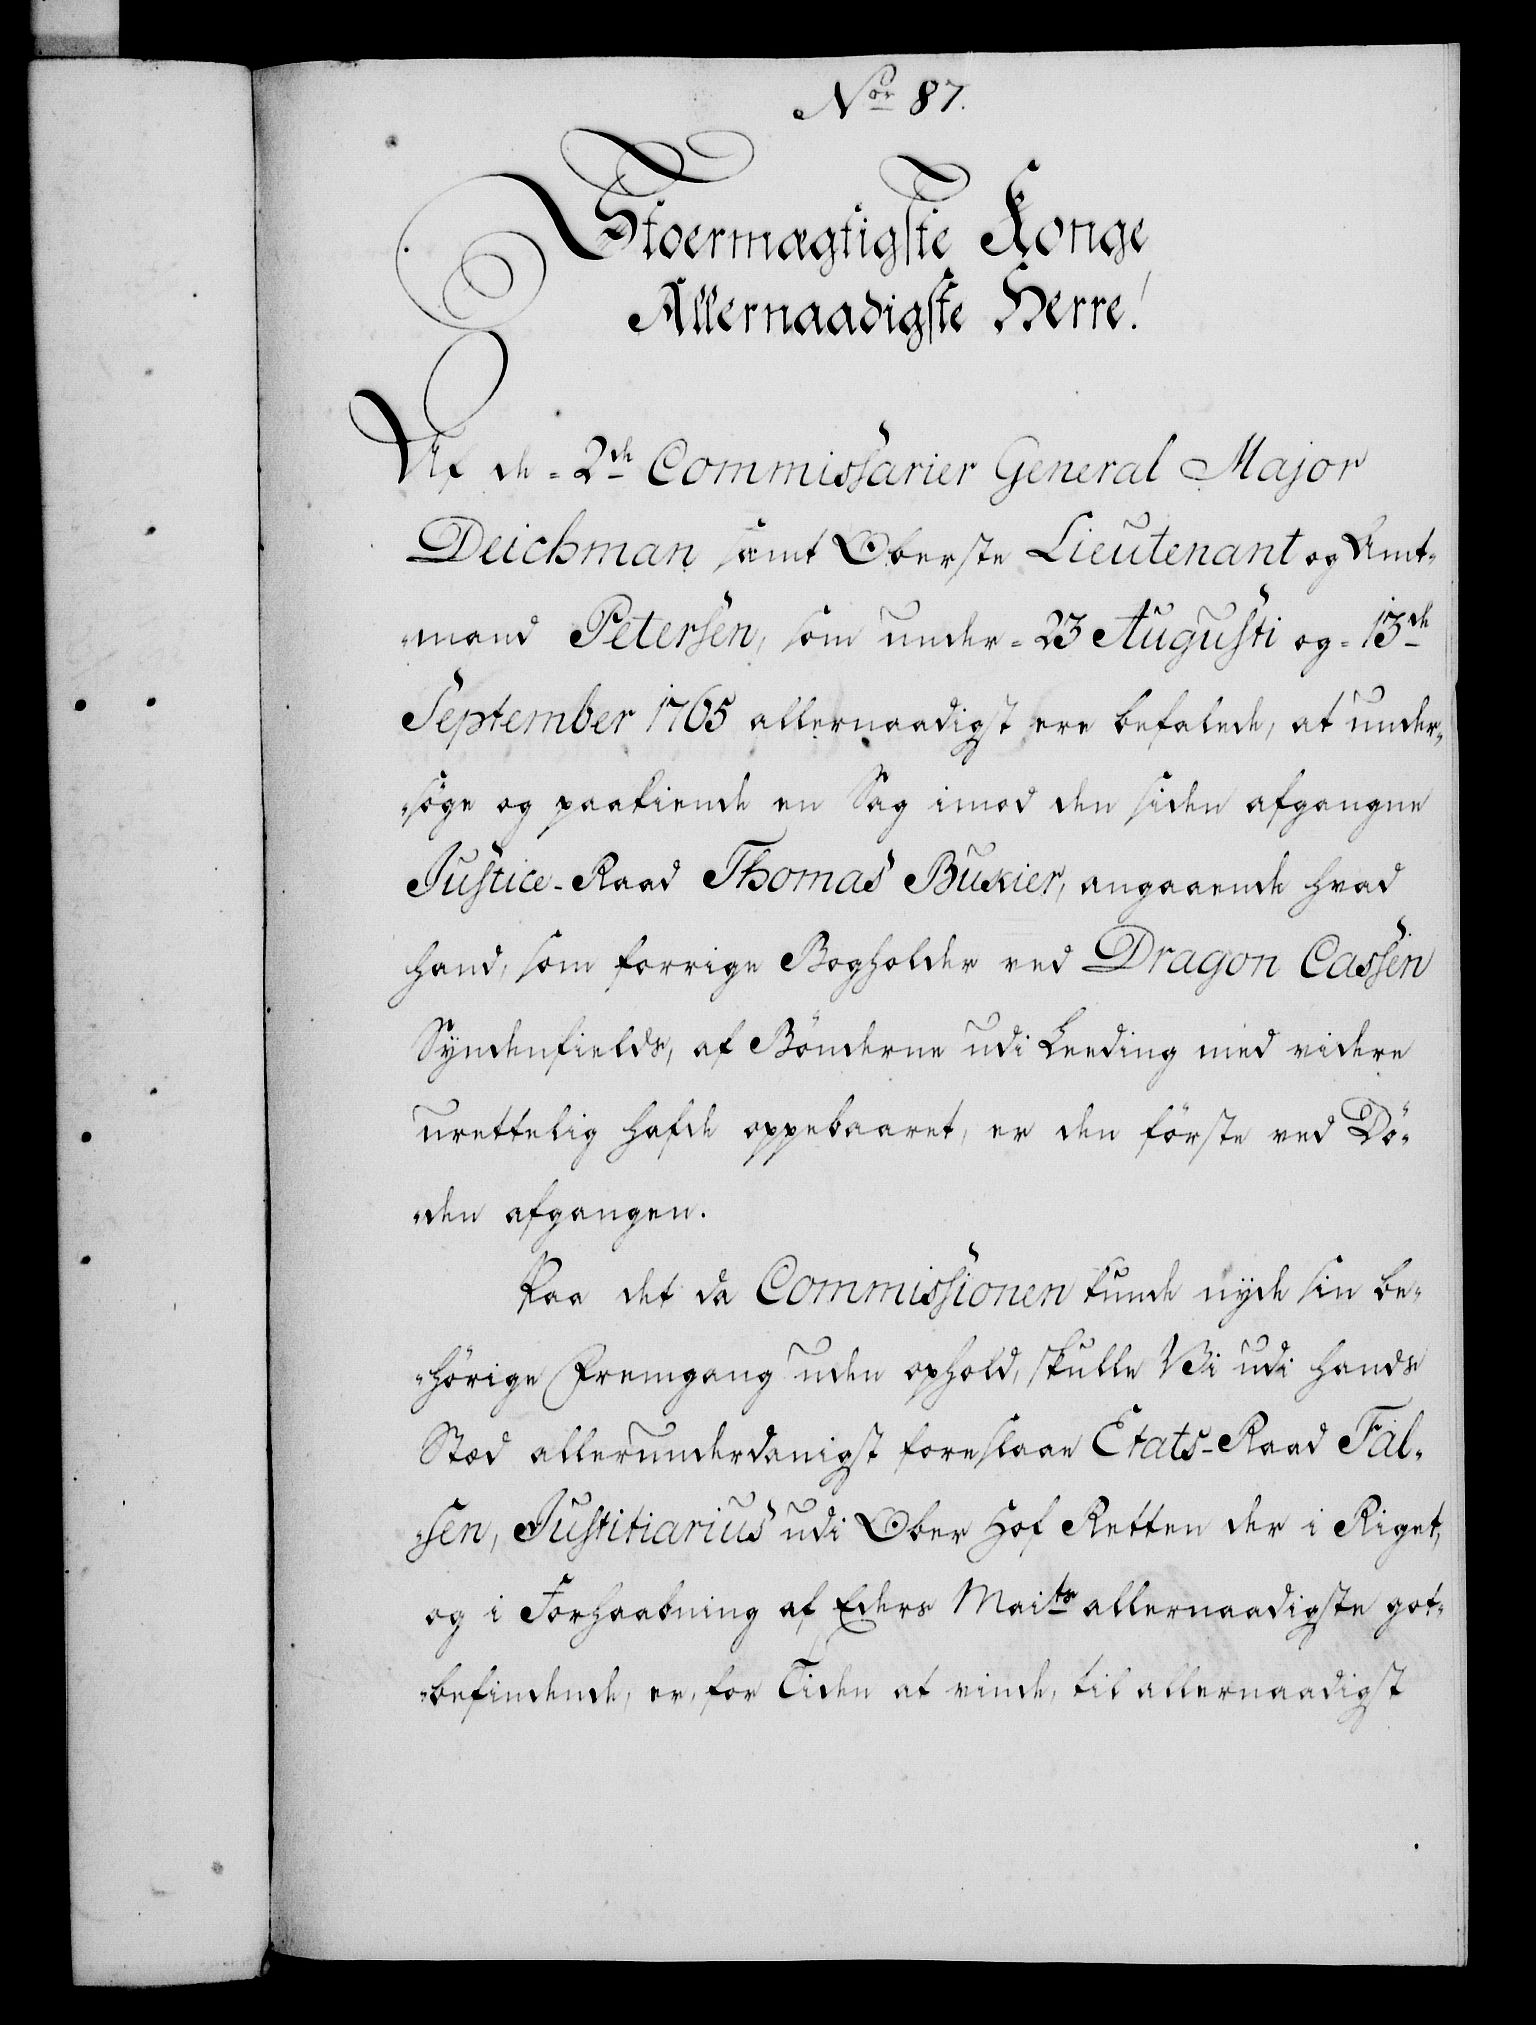 Nor 87.
Stoermægtigste Konge
Allernaadigste Herre!
Af de = 2de Commissarier General Major
Deichman samt Oberste Lieutenant og Amt-
-mand Petersen, som under = 23 Augusti og = 13de
September 1765 allernaadigst ere befalede, at under-
-søge og paakiende en Sag imod den siden afgangne
Justice-Raad Thomas Buxier, angaaende hvad
hand, som forrige Bogholder ved Dragon Cassen
Syndenfields, af Bönderne udi Leeding med videre
urettelig hafde oppebaaret, er den förste ved Dö-
-den afgangen.
Paa det da Commissionen kunde nyde sin be-
-hörige Fremgang uden ophold, skulle Vi udi hands
Stæd allerunderdanigst foreslaae Etats-Raad Fal-
-sen, Justitiarius udi Ober Hof Retten der i Riget,
og i Forhaabning af Eders Maits allernaadigste got-
-befindende, er, for Tiden at vinde, til allernaadigst